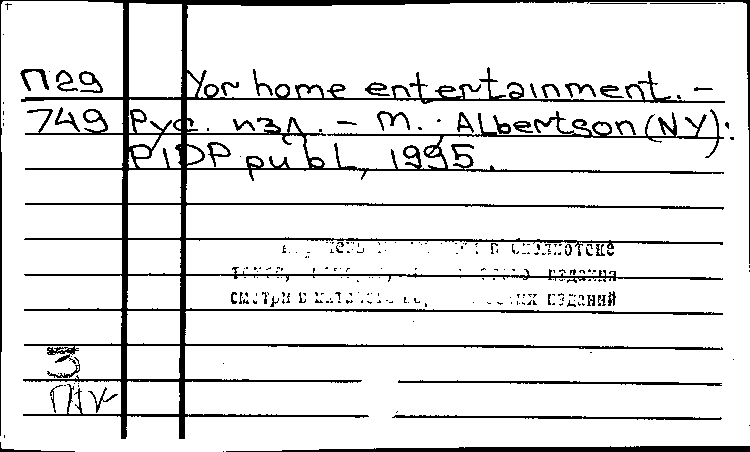 П29 Yor home entertainment. –
749 Рус. изд. – М.; Albertson (NY):
PIDP publ, 1995.
в библиотеке
издания
смотри в изданий
3